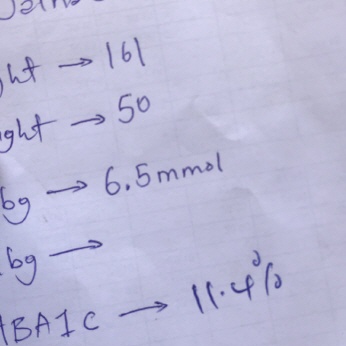 ght → 161
ght → 50
bg → 6.5mmol
bg →
HBA1C → 11.4%